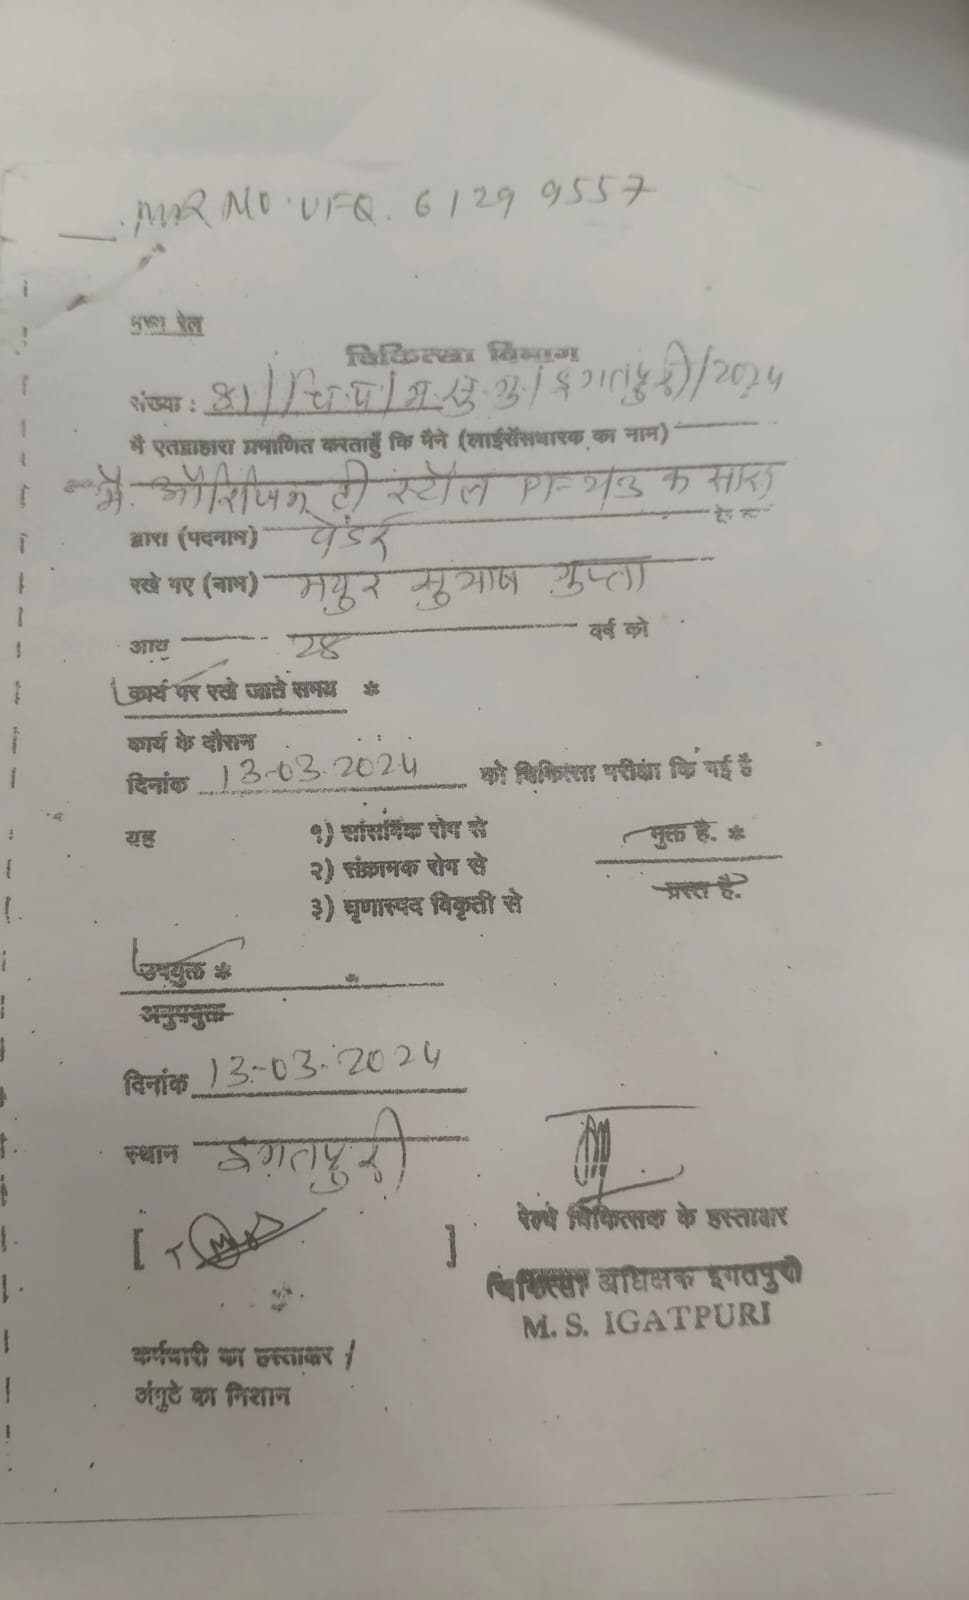 MR NO. UFQ. 61299557
मध्य रेल
चिकित्सा विभाग
संख्या : 81//चि.प/म.सु.गु/इगतपुरी/2024
मै एतद्वाहारा प्रमाणित करताहुँ कि मैने (लाईसेंसधारक का नाम)
मे. टी स्टॉल PF क
द्वारा (पदनाम) वेंडर
रखे गए (नाम) मयुर सुभाष गुप्ता
आयु 28 वर्ष को
कार्य पर रखे जाते समय *
कार्य के दौरान
दिनांक 13-03.2024 को चिकित्सा परीक्षा कि गई है
यह १) सांसर्गिक रोग से मुक्त है. *
२) संक्रामक रोग से
३) घृणास्पद विकृती से ग्रस्त है.
उपयुक्त *
अनुपयुक्त
दिनांक 13-03.2024
स्थान इगतपुरी
[ ]
रेल्वे चिकित्सक के हस्ताक्षर
चिकित्सा अधिक्षक इगतपुरी
M. S. IGATPURI
कर्मचारी का हस्ताक्षर /
अंगुटे का निशान